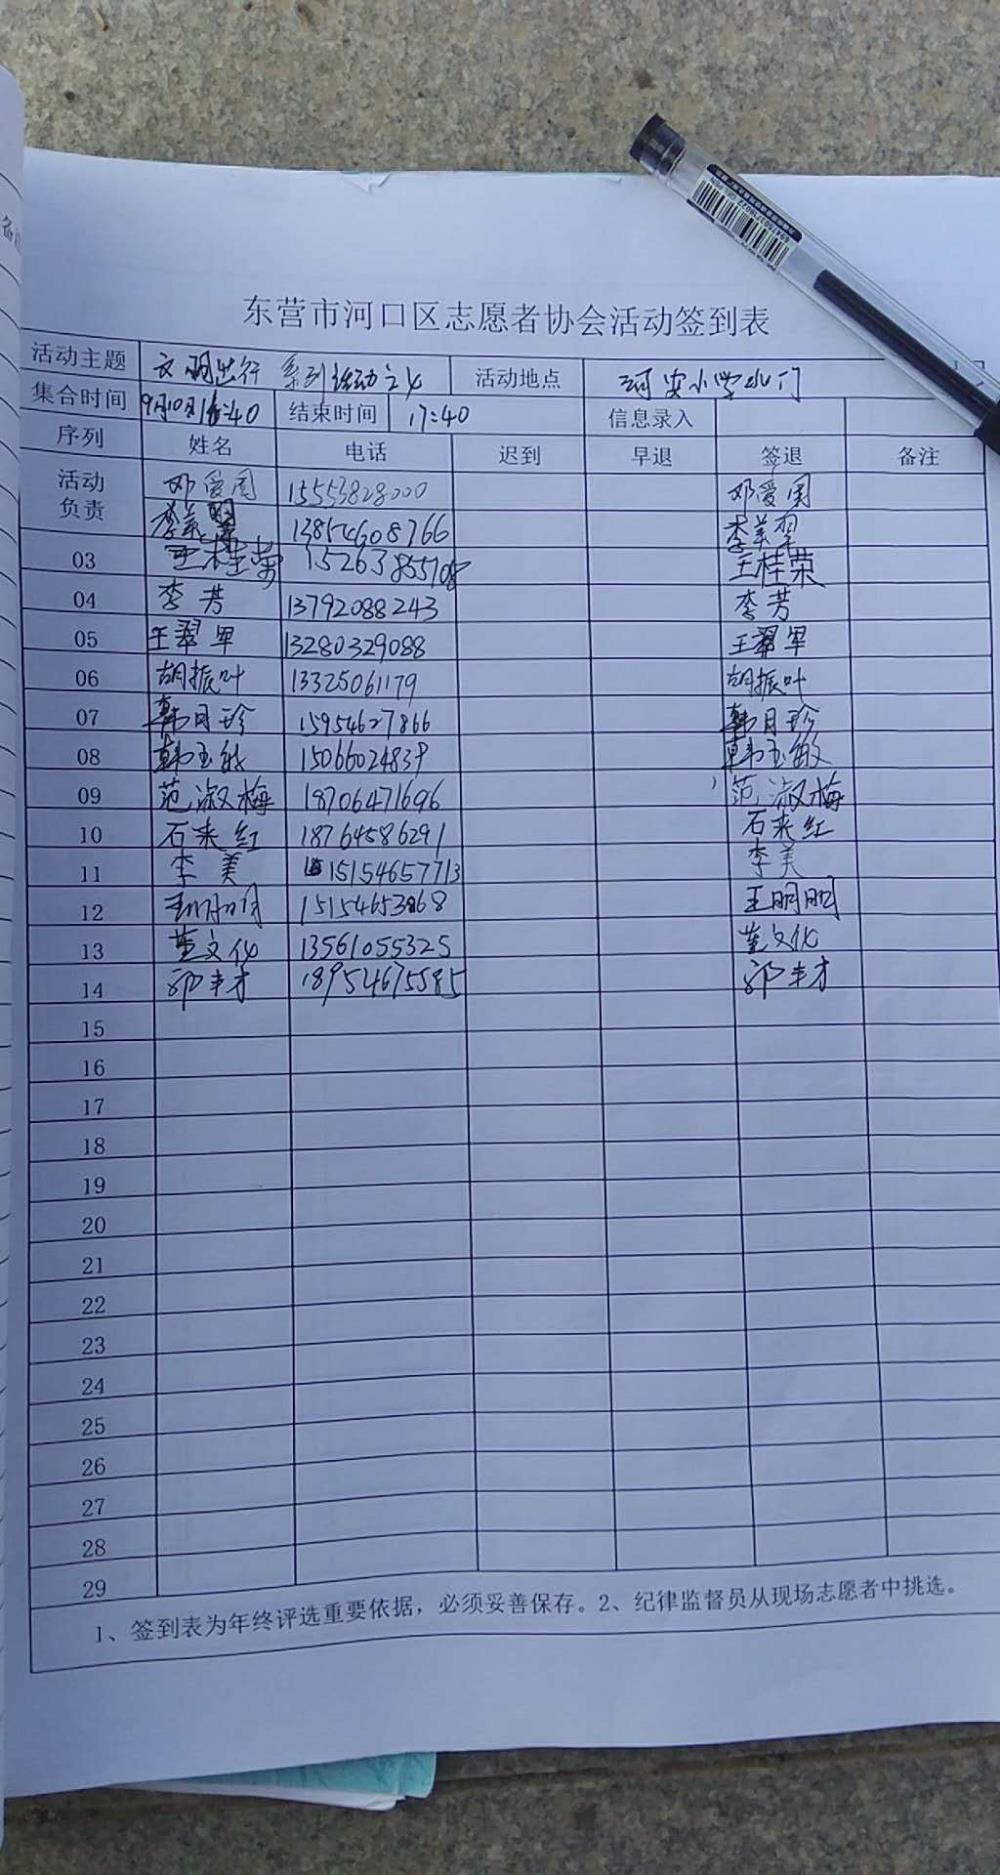 东营市河口区志愿者协会活动签到表
活动主题 文明出行 系列活动之 活动地点 河安小学北门
集合时间 9月10日16:40 结束时间 17:40 信息录入
序列 姓名 电话 迟到 早退 签退 备注
活动负责 邓爱国 15553828000 邓爱国
李美翠 13854608766 李美翠
03 王桂荣 15263855708 王桂荣
04 李芳 13792088243 李芳
05 王翠军 13280329088 王翠军
06 胡振叶 13325061179 胡振叶
07 韩月珍 15954627866 韩月珍
08 韩玉敏 15066024839 韩玉敏
09 范淑梅 18706471696 范淑梅
10 石来红 18764586291 石来红
11 李美 15154657713 李美
12 王明明 15154653868 王明明
13 董文化 13561055325 董文化
14 郭丰才 18954675585 郭丰才
15
16
17
18
19
20
21
22
23
24
25
26
27
28
29
1、签到表为年终评选重要依据，必须妥善保存。2、纪律监督员从现场志愿者中挑选。